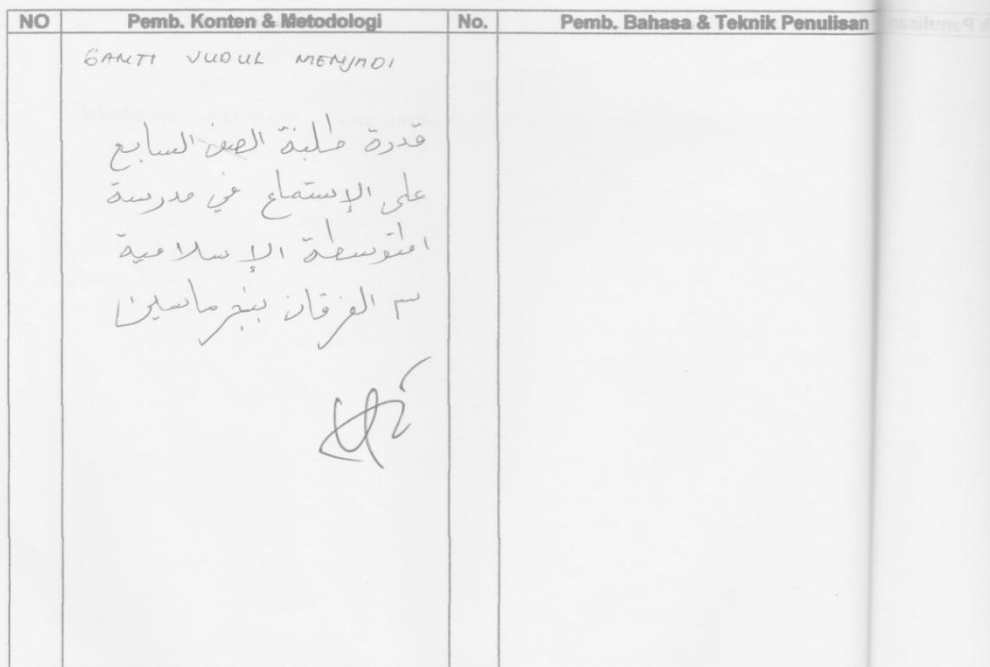 NO Pemb. Konten & Metodologi No. Pemb. Bahasa & Teknik Penulisan
GANTI JUDUL MENJADI
قدرة طلبة الصف السابع
على الإستماع في مدرسة
المتوسطة الإسلامية
الفرقان بنجرماسين